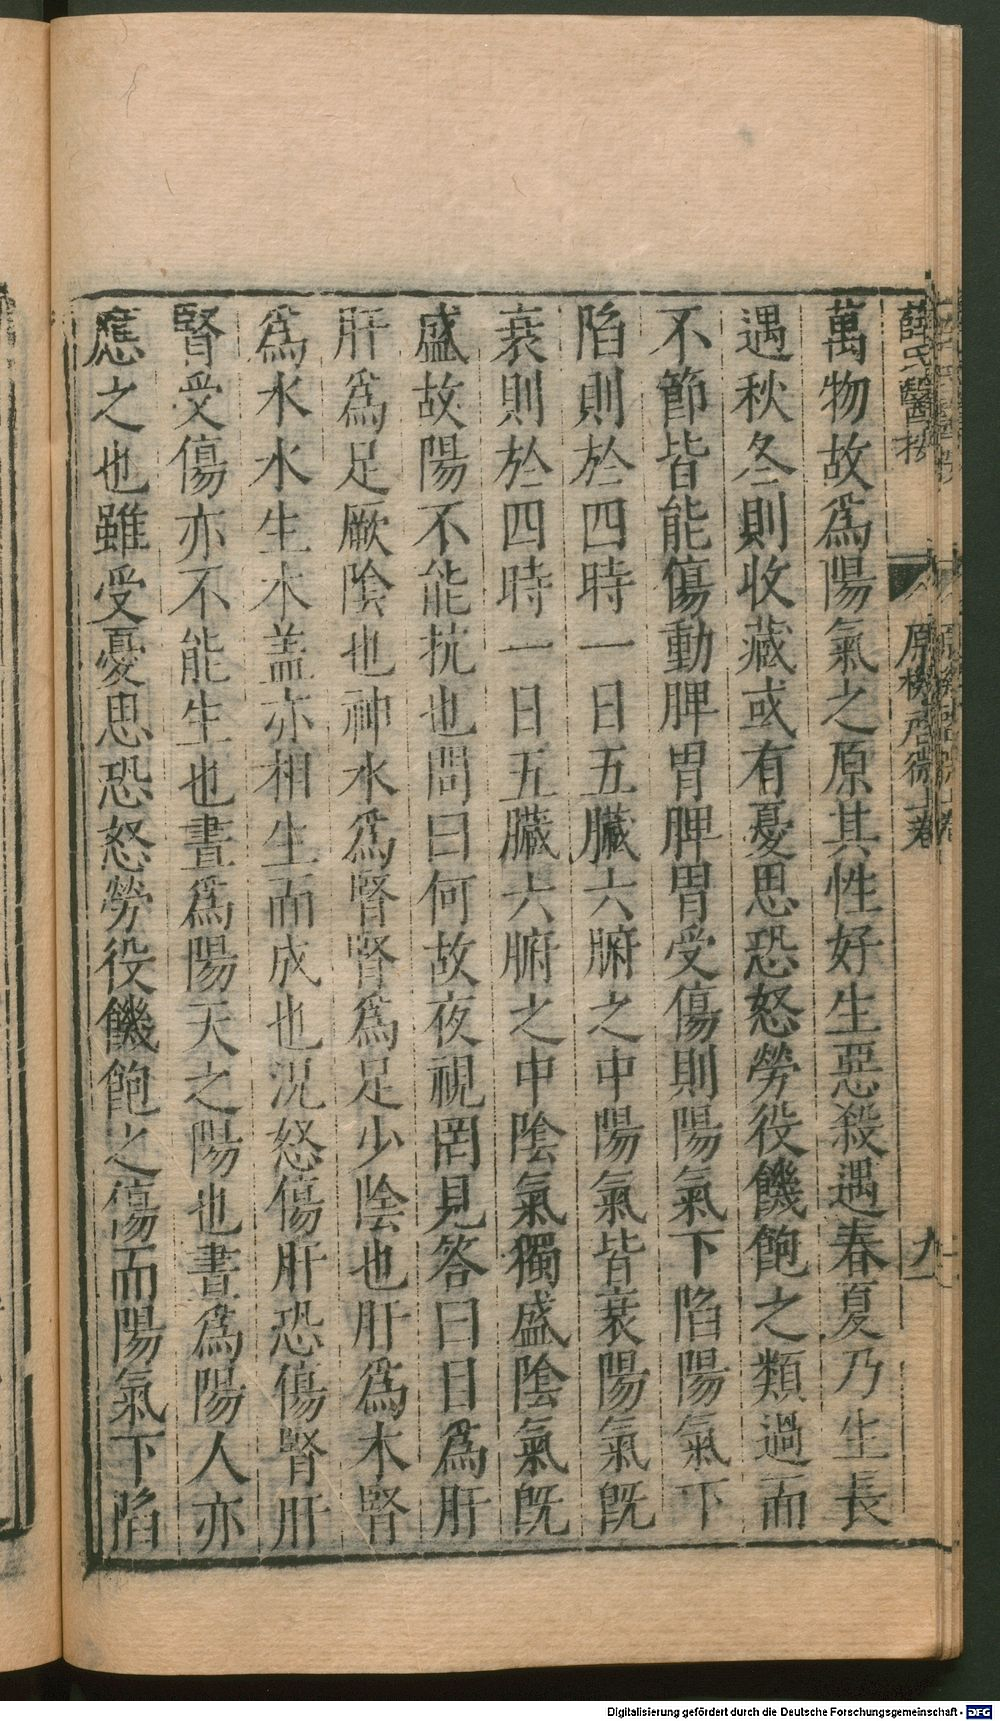 薛氏醫按 原機啓微上卷 九
萬物故爲陽氣之原其性好生惡殺遇春夏乃生長
遇秋冬則收藏或有憂思恐怒勞役饑飽之類過而
不節皆能傷動脾胃脾胃受傷則陽氣下陷陽氣下
陷則於四時一日五臟六腑之中陽氣皆衰陽氣旣
衰則於四時一日五臟六腑之中陰氣獨盛陰氣旣
盛故陽不能抗也問曰何故夜視罔見答曰目爲肝
肝爲足厥陰也神水爲腎腎爲足少陰也肝爲木腎
爲水水生木盖亦相生而成也況怒傷肝恐傷腎肝
腎受傷亦不能生也晝爲陽天之陽也晝爲陽人亦
應之也雖受憂思恐怒勞役饑飽之傷而陽氣下陷
Digitalisierung gefördert durch die Deutsche Forschungsgemeinschaft - DFG